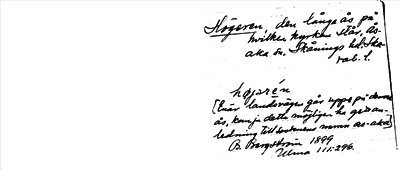 Högeren, den långa ås på
hvilken kyrkan står, Ås-
aka sn. Skånings hd. Ska-
rab. l.
högarén
[Enär landsvägen går uppe på denna
ås, kan ju detta möjligen ha gett an-
ledning till socknens namn as-aka]
B. Bergström 1899
Ulma 111:296.